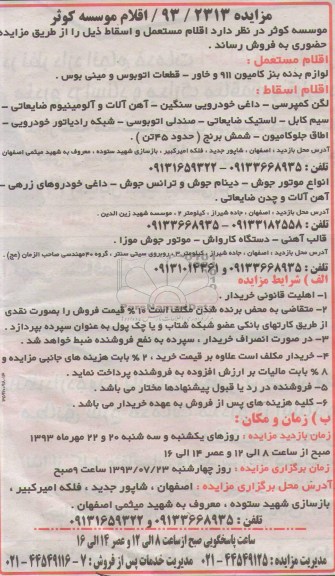 مزایده ۲۳۱۳ / ۹۳ / اقلام موسسه کوثر
موسسه کوثر در نظر دارد اقلام مستعمل و اسقاط ذیل را از طریق مزایده
حضوری به فروش رساند .
اقلام مستعمل :
لوازم بدنه بنز کامیون ۹۱۱ و خاور - قطعات اتوبوس و مینی بوس .
اقلام اسقاط :
لگن کمپرسی - داغی خودرویی سنگین - آهن آلات و آلومینیوم ضایعاتی -
سیم کابل - لاستیک ضایعاتی - صندلی اتوبوسی - شبکه رادیاتور خودرویی -
اطاق جلوکامیون - شمش برنج ( حدود ۴۵تن ) .
آدرس محل بازدید : اصفهان ، شاپور جدید ، فلکه امیرکبیر ، بازسازی شهید ستوده ، معروف به شهید میثمی اصفهان
تلفن : ۰۹۱۳۳۶۶۸۹۳۵ - ۰۹۱۳۱۶۵۹۳۲۲
انواع موتور جوش - دینام جوش و ترانس جوش - داغی خودروهای زرهی -
آهن آلات و چدن ضایعاتی .
آدرس محل بازدید : اصفهان ، جاده شیراز ، کیلومتر ۲ ، موسسه شهید زین الدین .
تلفن : ۰۹۱۳۳۱۸۲۵۵۸ - ۰۹۱۳۳۶۶۸۹۳۵
قالب آهنی - دستگاه کارواش - موتور جوش موزا .
آدرس محل بازدید : اصفهان ، جاده شیراز ، کیلومتر ۳ ، روبروی سیتی سنتر ، گروه ۴۰مهندسی صاحب الزمان (عج) .
تلفن : ۰۹۱۳۳۶۶۸۹۳۵ و ۰۹۱۳۱۰۱۴۳۶۱
الف ) شرایط مزایده
۱- اهلیت قانونی خریدار .
۲- متقاضی به محض برنده شدن مکلف است ۱۰ % قیمت فروش را بصورت نقدی
از طریق کارتهای بانکی عضو شبکه شتاب و یا چک پول به عنوان سپرده بپردازد .
۳- در صورت انصراف خریدار ، سپرده به نفع فروشنده ضبط خواهد شد .
۴- خریدار مکلف است علاوه بر قیمت خرید ، ۲ % بابت هزینه های جانبی مزایده و
۸ % بابت مالیات بر ارزش افزوده به فروشنده پرداخت نماید .
۵- فروشنده در رد یا قبول پیشنهادها مختار می باشد .
۶- کلیه هزینه های پس از فروش به عهده خریدار می باشد .
ب ) زمان و مکان :
زمان بازدید مزایده : روزهای یکشنبه و سه شنبه ۲۰ و ۲۲ مهرماه ۱۳۹۳
صبح از ساعت ۸ الی ۱۲ و عصر ۱۴ الی ۱۶
زمان برگزاری مزایده : روز چهارشنبه ۱۳۹۳/۰۷/۲۳ ساعت ۹صبح
آدرس محل برگزاری مزایده : اصفهان ، شاپور جدید ، فلکه امیرکبیر ،
بازسازی شهید ستوده ، معروف به شهید میثمی اصفهان .
تلفن : ۰۹۱۳۳۶۶۸۹۳۵ و ۰۹۱۳۱۶۵۹۳۲۲
ساعت پاسخگویی صبح ازساعت ۸ الی ۱۲ و عصر ۱۴ الی ۱۶
مدیریت مزایده : ۴۴۵۴۹۱۲۵ - ۰۲۱ مدیریت خدمات پس از فروش : ۷ - ۴۴۵۴۹۱۱۶ - ۰۲۱